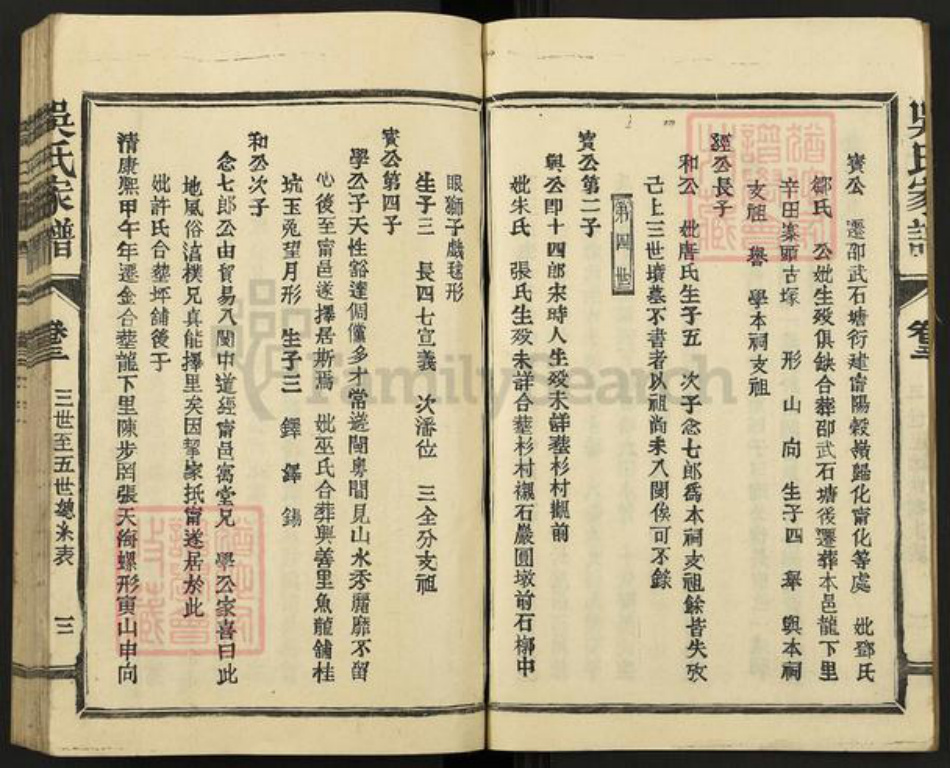 寳公 遷邵武石塘衍建甯陽毅嶺歸化甯化等處 妣鄧氏
鄒氏 公妣生殁俱缺合葬邵武石塘後遷葬本邑龍下里
辛田寨頭古塚 形 山 向 生子四 擧 與本祠
支祖 譽 學本祠支祖
經公長子
和公 妣唐氏生子五 次子念七郎爲本祠支祖餘皆失攷
己上三世墳墓不書者以祖尚未入閩俟可不錄
第四世
寳公第二子
與公卽十四郎宋時人生殁未詳葬杉村攌前
妣朱氏 張氏生殁未詳合葬杉村襯石嚴圓墩前石椰中
眼獅子戲毬形
生子三 長四七宣義 次潘位 三全分支祖
寳公第四子
學公子天性豁達倜儻多才常遊閩粤間見山水秀麗靡不留
心後至甯邑遂擇居斯焉 妣巫氏合葬興善里魚龍舖桂
坑玉兎望月形 生子三 鐸 鐸 錫
和公次子
念七郎公由貿易入閩中道經甯邑寓堂兄 學公家喜曰此
地風俗渣樸兄真能擇里矣因挈家抵甯遂居於此
妣許氏合葬坪舖後于
清康熙甲午年遷金合葬龍下里陳步圀張天海螺形寅山申向
吳氏家譜
卷三
三世至五世總系表
三
吳氏家譜
卷三
FamilySearch